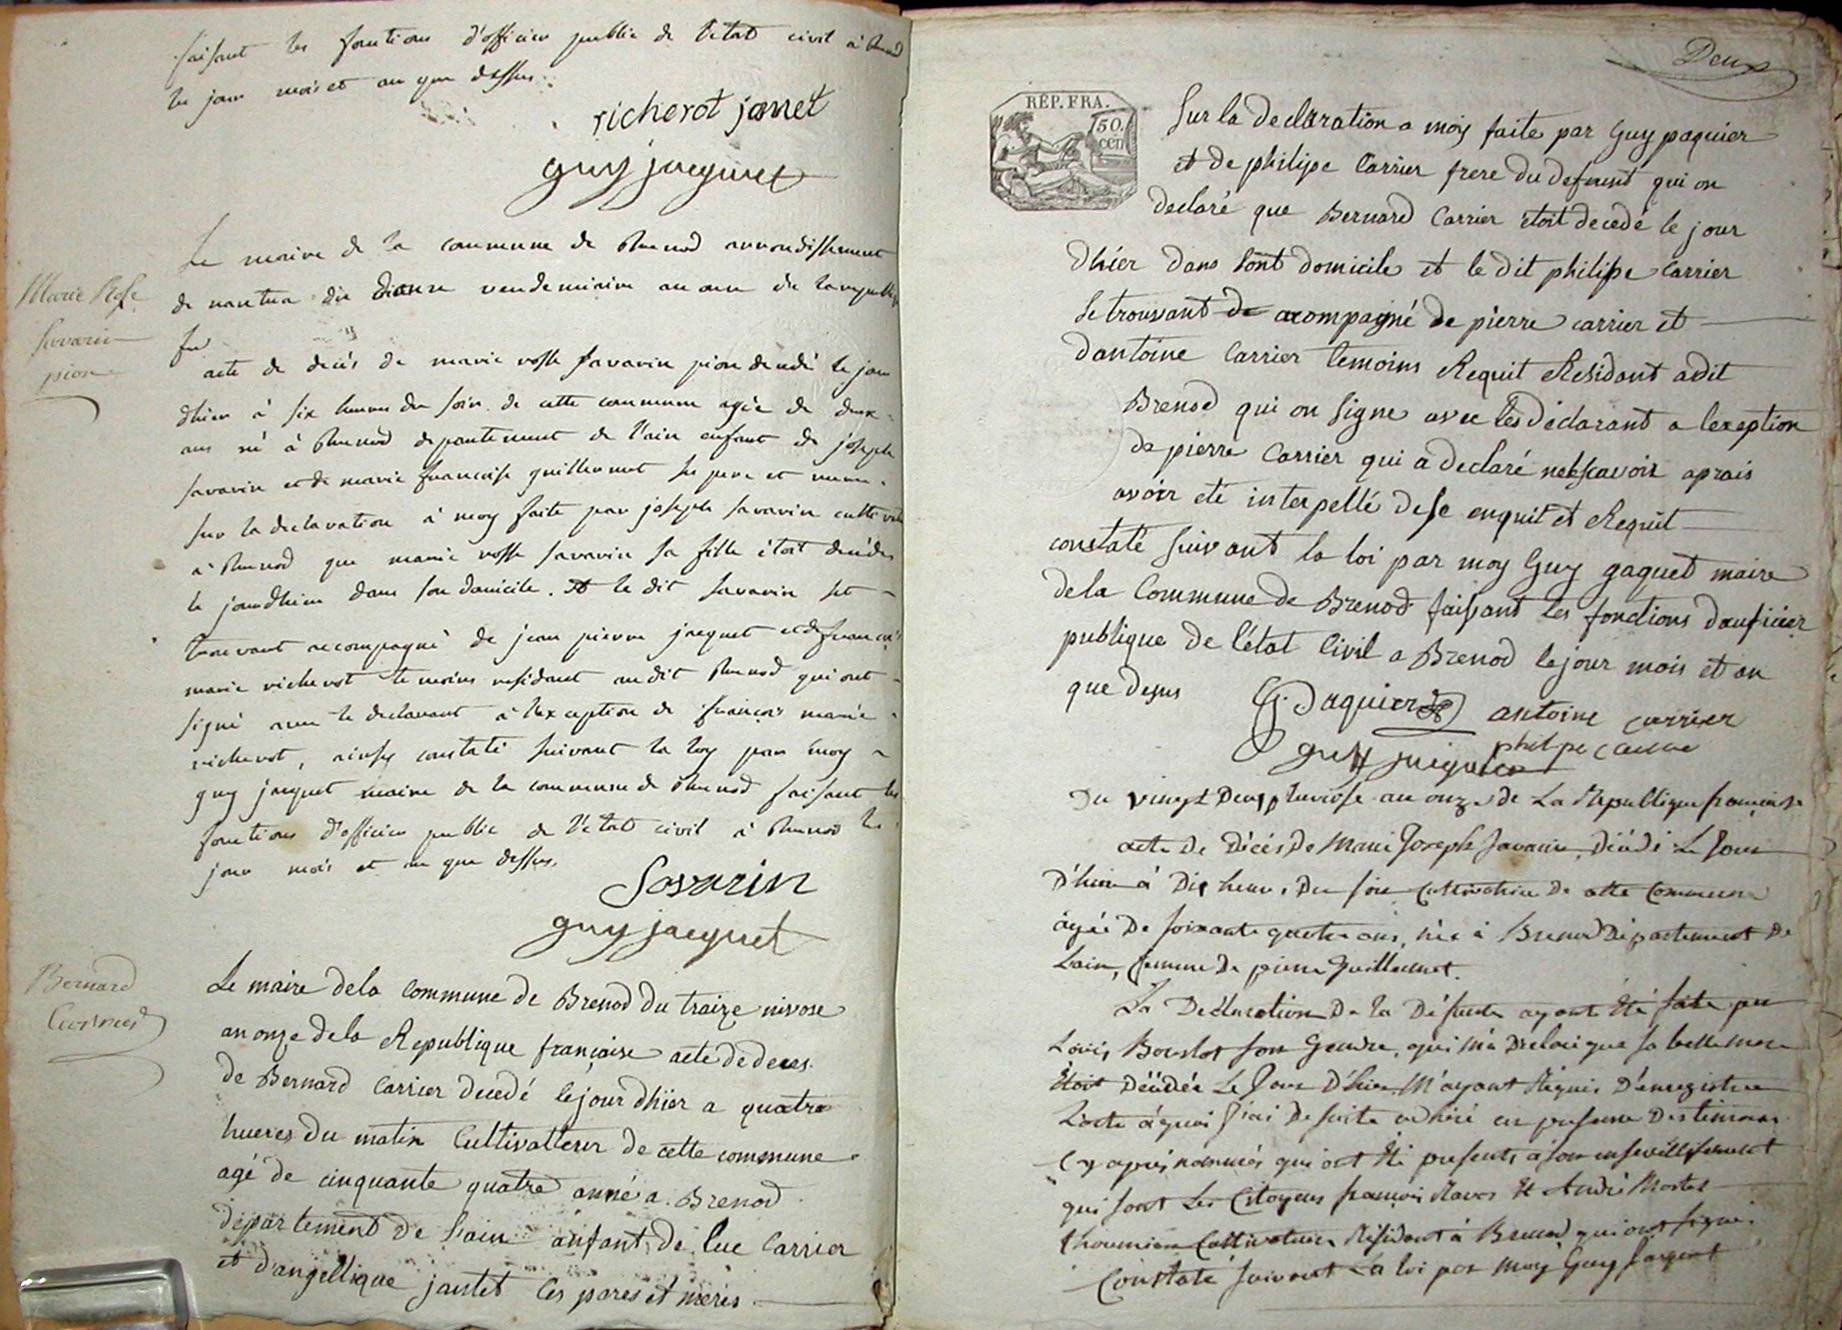 faisant les fonctions d'officier public de l'état civil à Brenod
les jour mois et an que dessus.
richerot janet
guy jacquet
Marie Rose
Savarin
pion
Le maire de la commune de Brenod arrondissement
de nantua du vendemiaire an onze de la republi
acte de decés de marie rosse savarin pion decedé le jour
dhier à six heures du soir de cette commune agée de deux
ans né à Brenod departement de l'ain enfant de joseph
savarin et de marie francoise guillermet ses pere et mere.
sur la declaration à moy faite par joseph savarin cultivat
à Brenod que marie rosse savarin sa fille étoit decédée
le jour dhier dans son domicile. et le dit savarin set
trouvant accompagné de jean pierre jacquet et de francois
marie richerot temoins residant au dit Brenod qui ont
signé avec le declarant à l'exception de françois marie
richerot, ainsy constaté suivant la loy par moy
guy jacquet maire de la commune de Brenod faisant les
fonctions d'officier public de l'état civil à Brenod les
jour mois et an que dessus.
Savarin
guy jacquet
Bernard
Carrier
Le maire dela commune de Brenod du traize nivose
an onze dela Republique françoise acte de deces
de Bernard Carrier decedé le jour dhier a quatre
hueres du matin Cultivatteur de cette commune
agé de cinquante quatre anné a Brenod
departement de Lain anfant de luc Carrier
et d'angellique jantet ces pares et meres
Deux
RÉP. FRA.
50.
cen
Sur la Declaration a moy faite par Guy paquier
et de philipe Carrier frere du defeunt qui on
declaré que Bernard Carrier étoit decedé le jour
dhier dans sont domicile et le dit philipe Carrier
se trouvant de acompagné de pierre carrier et
dantoine Carrier temoins Requit Residant adit
Brenod qui on signe avec les declarant a lexeption
de pierre Carrier qui a declaré ne scavoir aprais
avoir eté interpellé de se enquit et Requit
constaté suivant la loi par moy Guy gaquet maire
dela Commune de Brenod faisant les fonctions dauficier
publique de l'état Civil a Brenod le jour mois et an
que desus
G. Paquier antoine carrier
philipe carrier
guy jacquet
Du vingt Deux pluviose an onze de La Republique françoise
acte De Décés De Marie Joseph Savarin, Décédé Le Jour
D'hier à Dix heures Du soir Cultivatrice De cette Commune
agée De soixante quatre ans, née à Brenod Département De
Lain, femme De pierre Guillermet.
La Déclaration De la Défunte ayant été faite par
Louis Bourlot son Gendre, qui m'a Declaré que sa belle mere
étoit Décédée Le Jour D'hier M'ayant Réquis D'enregistrer
L'acte à quoi J'ai De suite adhéré en presence Des temoins
Cy aprés nommés qui ont été presents à son ensevelissement
qui sont Les Citoyens françois Ravos Et André Mortel
Cultivateurs Résidant à Brenod qui ont signé.
Constaté suivant La loi par moy Guy Jacquet